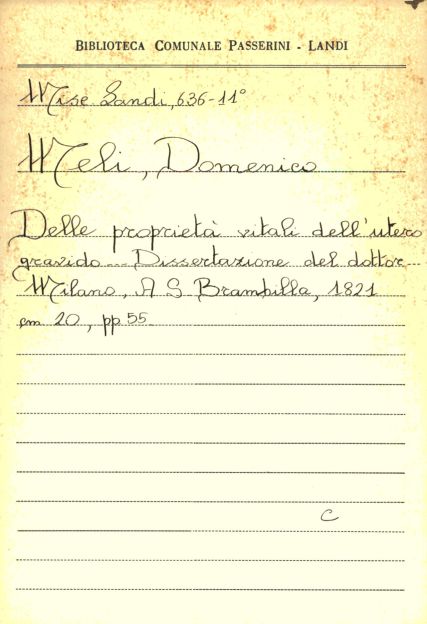 BIBLIOTECA COMUNALE PASSERINI - LANDI
Misc Landi, 636-11°
Meli, Domenico
Delle proprietà vitali dell'utero
gravido... Dissertazione del dottor...
Milano, A S Brambilla, 1821
cm 20, pp 55
C